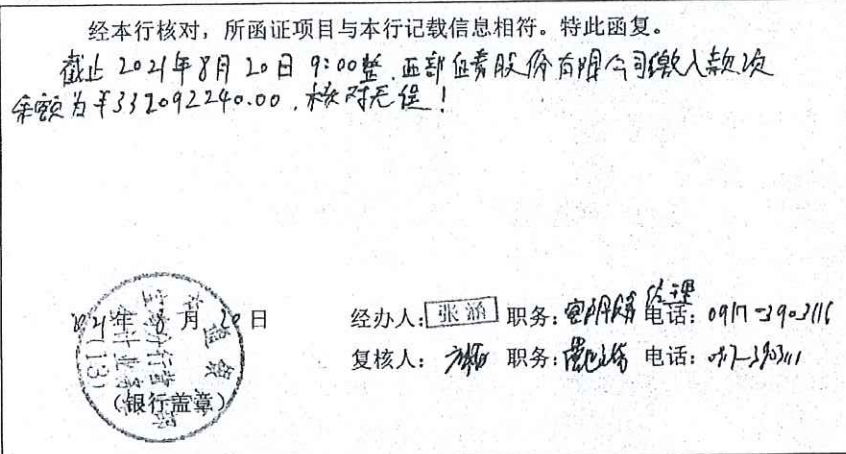 经本行核对，所函证项目与本行记载信息相符。特此函复。
截止2021年8月20日9:00整，西部证券股份有限公司缴入款项
余额为¥332092240.00，核对无误！
2021年8月20日
经办人：张涵 职务：客户服务经理 电话：0917-3903116
复核人： 职务： 电话：0917-3903111
（银行盖章）
(13)